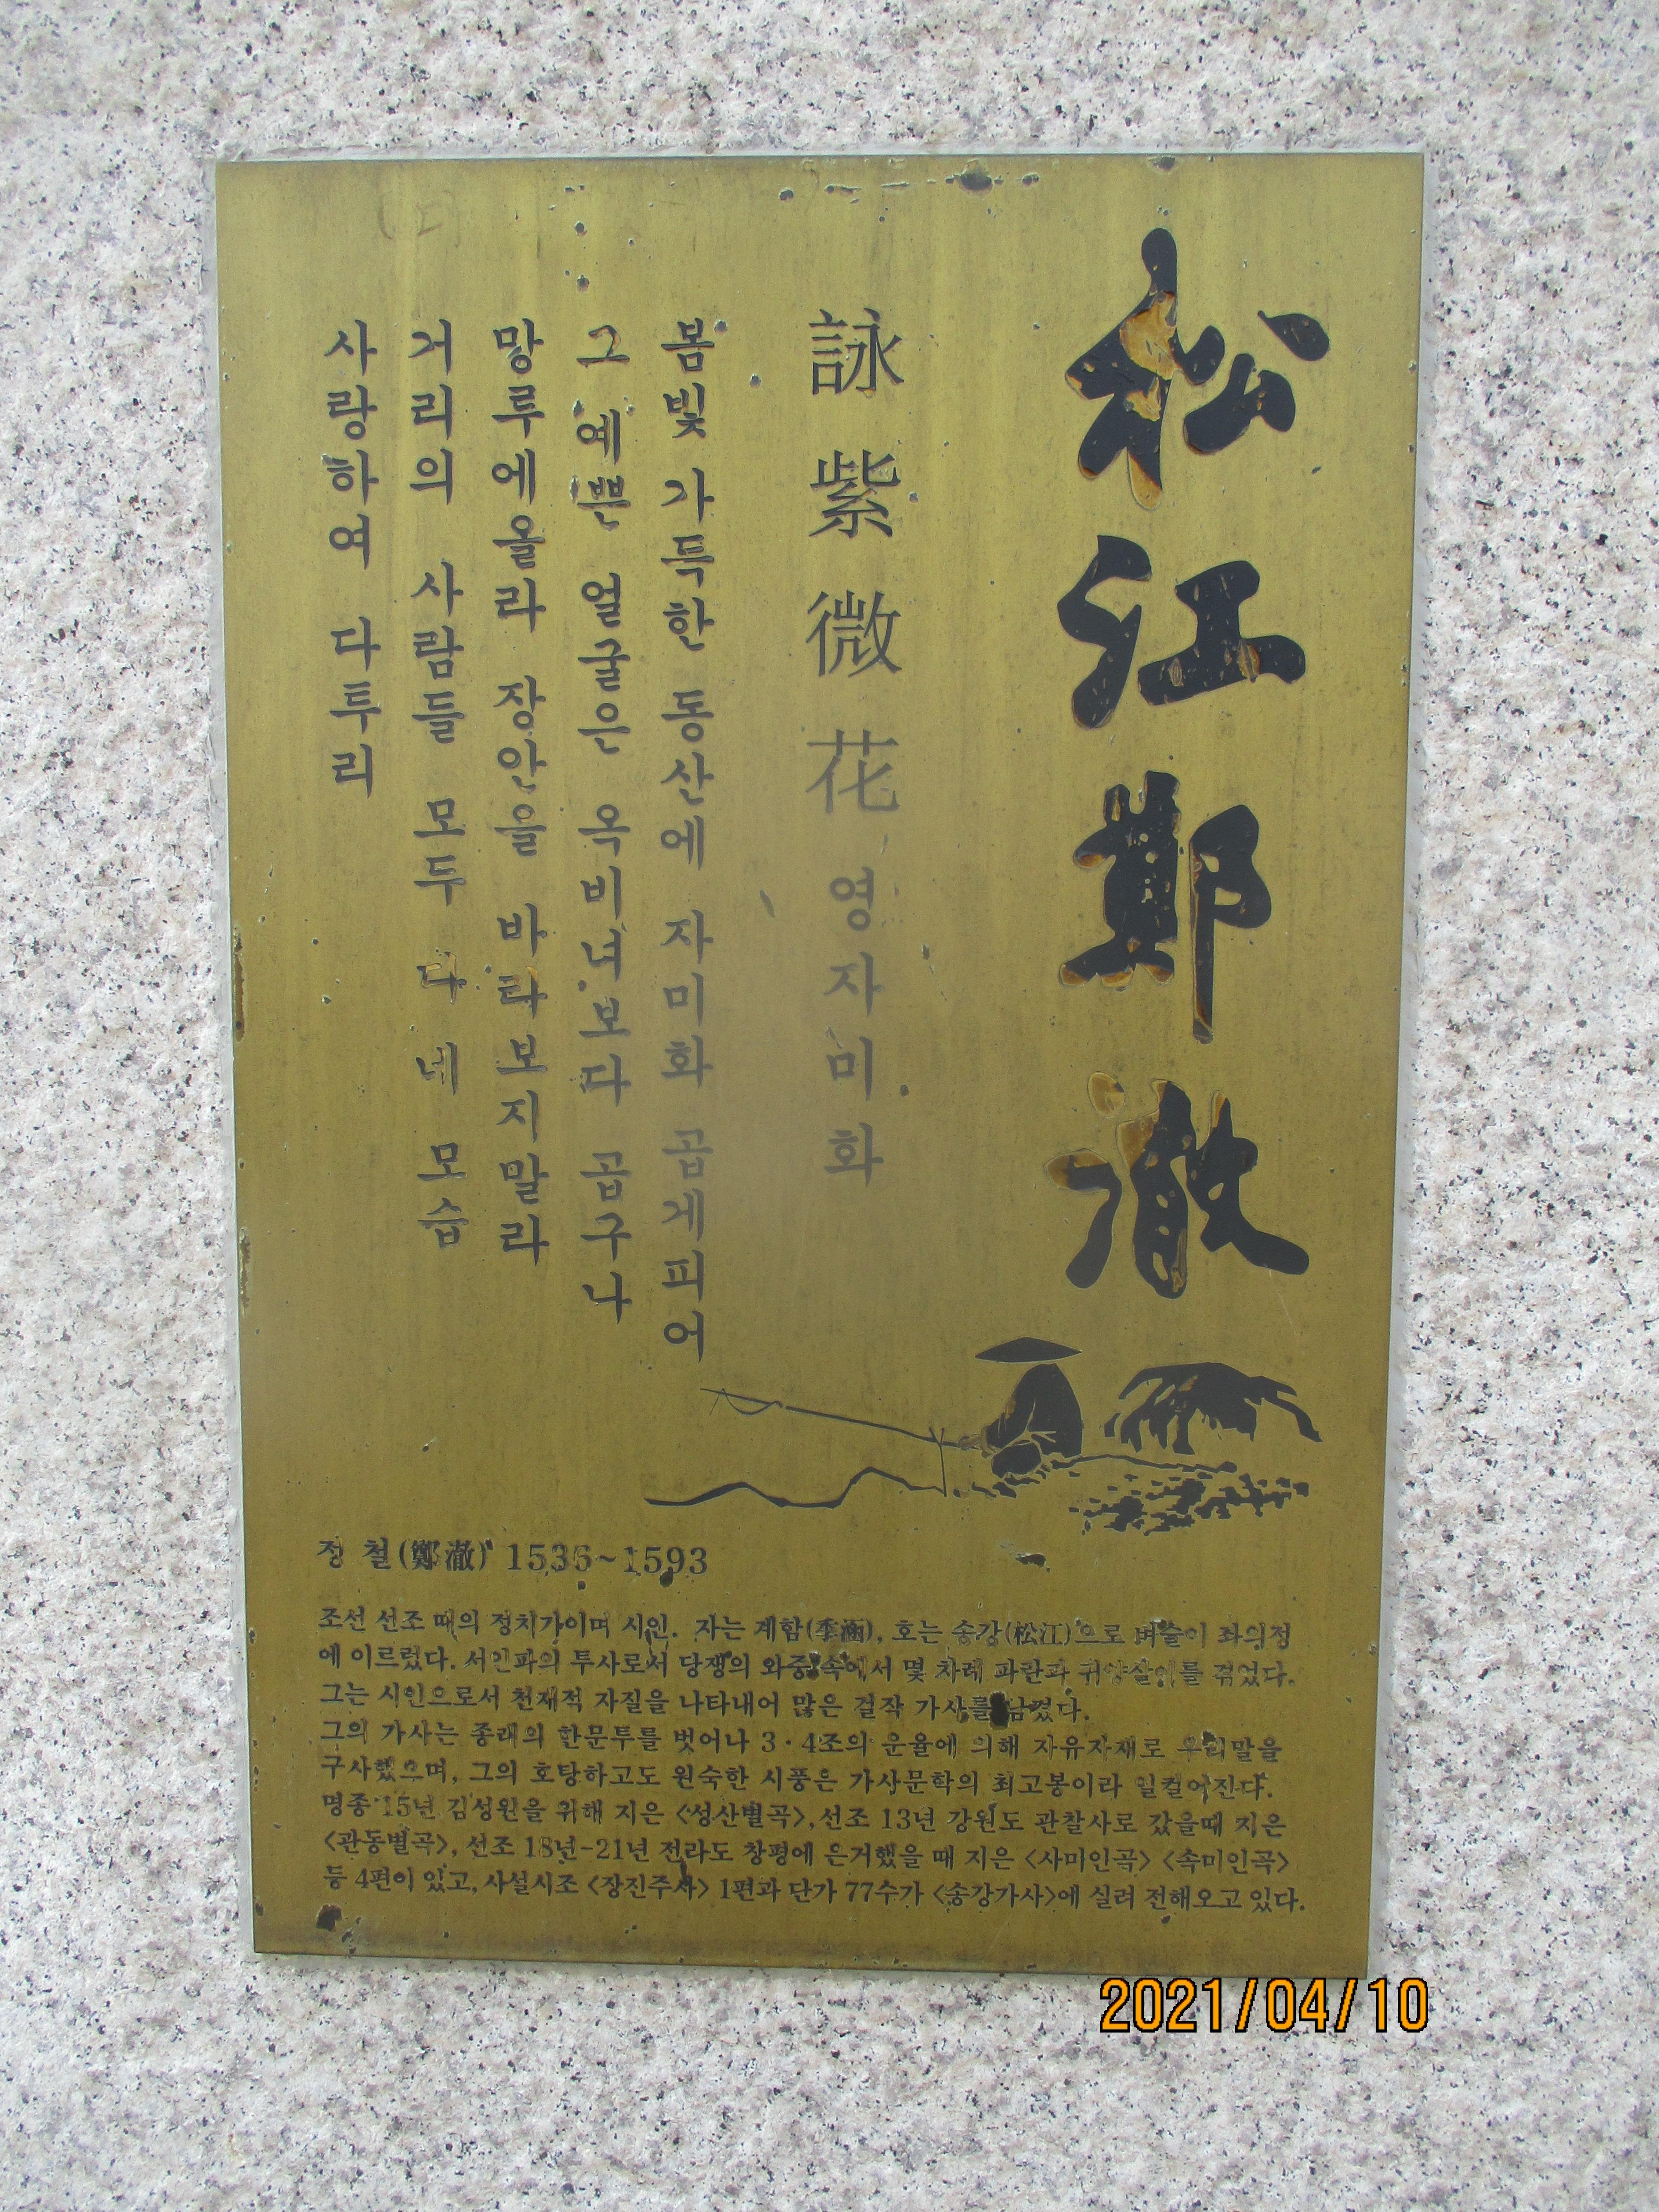 松江鄭澈
詠紫微花 영자미화
봄빛 가득한 동산에 자미화 곱게피어
그 예쁜 얼굴은 옥비녀보다 곱구나
망루에올라 장안을 바라보지말라
거리의 사람들 모두 다 네 모습
사랑하여 다투리
정 철(鄭澈) 1536~1593
조선 선조 때의 정치가이며 시인. 자는 계함(季涵), 호는 송강(松江)으로 벼슬이 좌의정
에 이르렀다. 서인파의 투사로서 당쟁의 와중속에서 몇 차례 파란과 귀양살이를 겪었다.
그는 시인으로서 천재적 자질을 나타내어 많은 걸작 가사를 남겼다.
그의 가사는 종래의 한문투를 벗어나 3·4조의 운율에 의해 자유자재로 우리말을
구사했으며, 그의 호탕하고도 원숙한 시풍은 가사문학의 최고봉이라 일컬어진다.
명종 15년 김성원을 위해 지은 〈성산별곡〉, 선조 13년 강원도 관찰사로 갔을때 지은
〈관동별곡〉, 선조 18년-21년 전라도 창평에 은거했을 때 지은 〈사미인곡〉 〈속미인곡〉
등 4편이 있고, 사설시조 〈장진주사〉 1편과 단가 77수가 〈송강가사〉에 실려 전해오고 있다.
2021/04/10